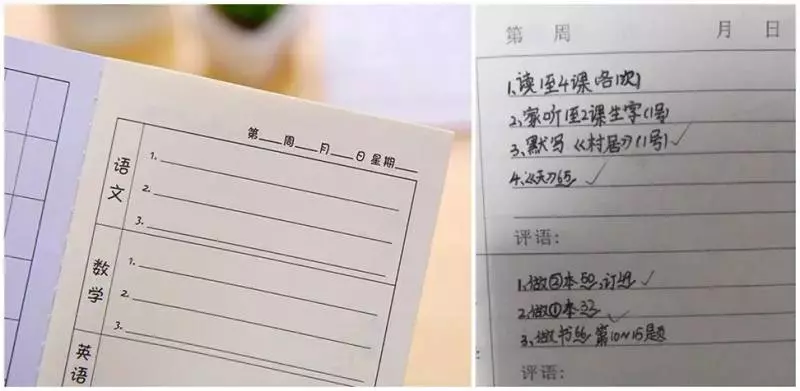 第__周__月__日 星期__
语文
1.
2.
3.
数学
1.
2.
3.
英语
第 周 月 日
1.读1至4课(各1次)
2.家听1至2课生字(1号)
3.默写《村居》(1号)✓
4.《天》65 ✓
评语:
1.做②本50,订正 ✓
2.做①本33 ✓
3.做书 第10~15题
评语: